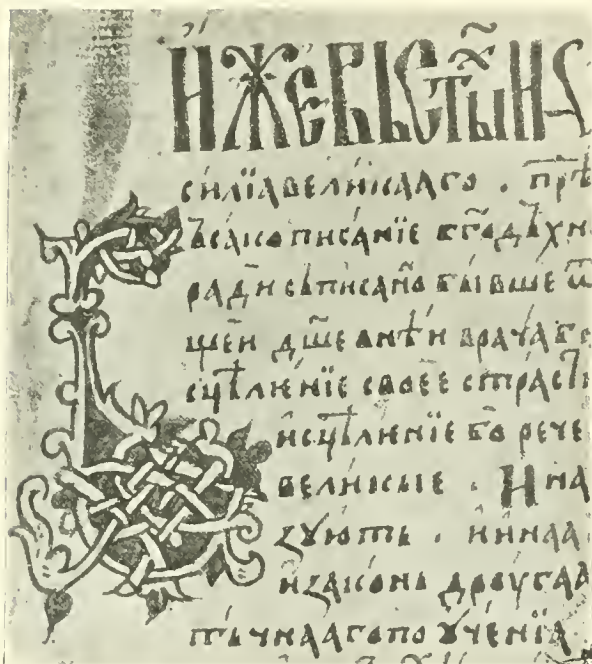 ИЖЕ ВЬ СТ҃ЫИ
силїа великааго . прѣ
ьсако писанїе б҃годꙋхн
ради сьписано бывше ѿ
щеи дш҃евнѣи врачаб
сцѣленїе своее страсти
исцѣленїе бо рече
великые . И на
ꙁꙋють . и ина а
и ꙁаконь дроугаа
тьчнааго поꙋченїа